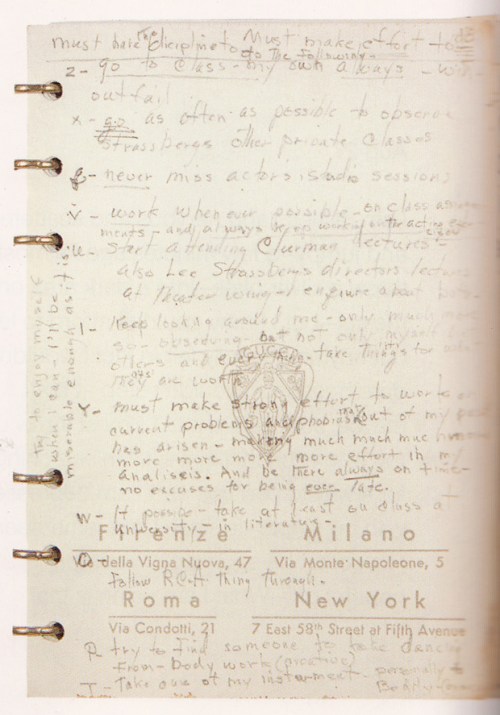 must have the dicipline to Must make effort to do
do the following -
z - go to class - my own always - without
out fail
x - go as often as possible to observe
Strassbergs other private classes
g - never miss actors studio sessions
v - work whenever possible - on class assign
ments - and always keep working on the acting exer
cises
u - start attending Clurman lectures -
also Lee Strassbergs directors lectures
at theater wing - enquire about both
l - Keep looking around me - only much more
so - observing - but not only myself but
others and everything - take things for what
they are worth
Y - must make strong effort to work on
current problems and phobias that out of my past
has arisen - making much much much
more more more more more effort in my
analisis. And be there always on time -
no excuses for being ever late.
w - If possible - take at least one class at
university - in literature -
Firenze Milano
Via della Vigna Nuova, 47 Via Monte Napoleone, 5
follow RCA thing through.
Roma New York
Via Condotti, 21 7 East 58th Street at Fifth Avenue
p try to find someone to take dancing
from - body work (creative)
T - Take care of my instrument - personally &
bodily
try to enjoy myself
when I can - I'll be
miserable enough as it is.